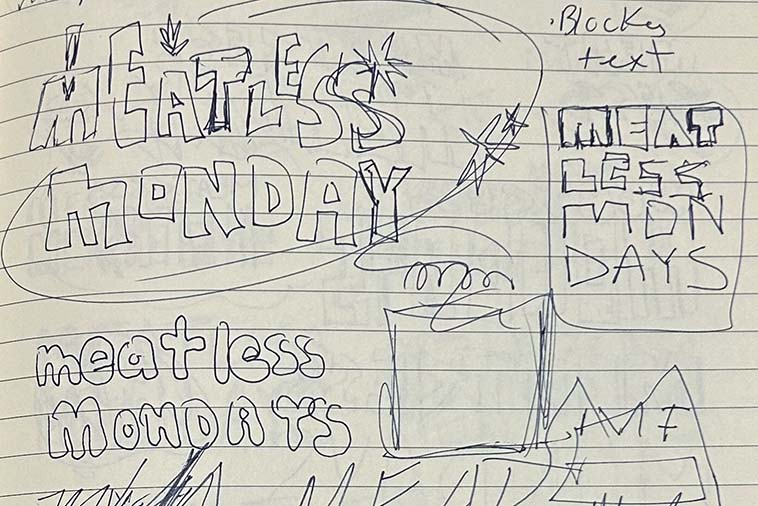 MEATLESS
MONDAY
·Blocky
text
MEAT
LESS
MON
DAYS
meatless
MONDAYS